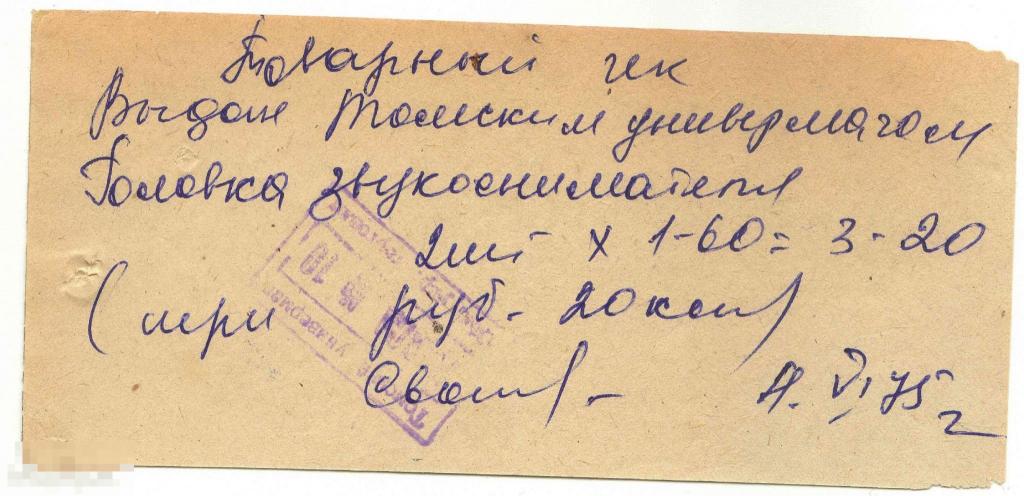 Товарный чек
Выдан Томским универмагом
Головка звукоснимателя
2шт х 1-60= 3-20
(три руб. 20коп)
VI 75 г
универмаг